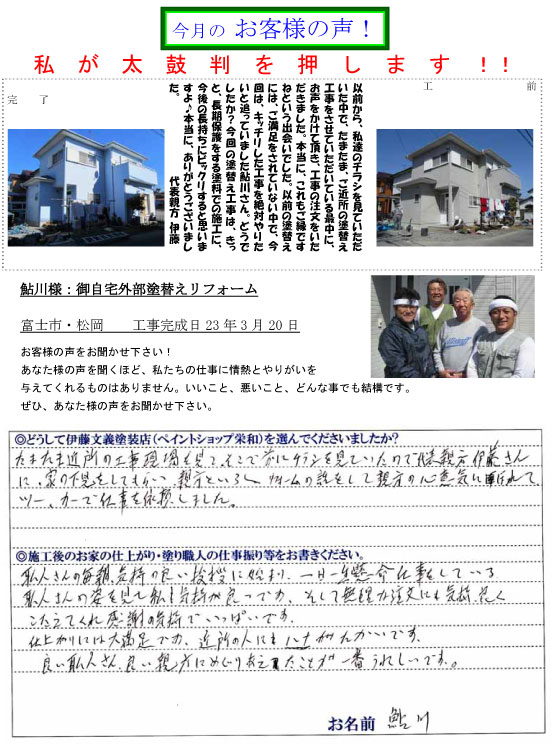 今月の お客様の声！
私が太鼓判を押します!!
工　前
完　了
以前から、私達のチラシを見ていただ
いた中で、たまたま、ご近所の塗替え
工事をさせていただいている最中に、
お声をかけて頂き、工事の注文をいた
だきました。本当に、これもご縁です
ねという出会いでした。以前の塗替え
には、ご満足をされていない中で、今
回は、キッチリした工事を絶対やりた
いと迫っていました鮎川さん。どうで
したか？今回の塗替え工事は、きっ
と、長期保護をする塗料での施工に、
今後の長持ちにビックリすると思いま
すよ♪本当に、ありがとうございまし
た。
代表親方 伊藤
鮎川様：御自宅外部塗替えリフォーム
富士市・松岡　　工事完成日 23 年 3 月 20 日
お客様の声をお聞かせ下さい！
あなた様の声を聞くほど、私たちの仕事に情熱とやりがいを
与えてくれるものはありません。いいこと、悪いこと、どんな事でも結構です。
ぜひ、あなた様の声をお聞かせ下さい。
◎どうして伊藤文義塗装店(ペイントショップ栄和)を選んでくださいましたか?
たまたま近所の工事現場を見て、そこで前にチラシを見ていたので代表親方伊藤さん
に、家の下見をしてもらい 親方といろいろ リフォームの話をして親方の心意気に
ツー、カーで仕事を依頼しました。
◎施工後のお家の仕上がり・塗り職人の仕事振り等をお書きください。
職人さんの毎朝気持の良い挨拶に始まり、一日一生懸命仕事をしている
職人さんの姿を見て私も気持が良かったです、そして無理な注文にも気持良く
こたえてくれ感謝の気持でいっぱいです。
仕上がりには大満足です、近所の人にも
良い職人さん、良い親方にめぐり会えたことが一番うれしいです。
お名前 鮎川